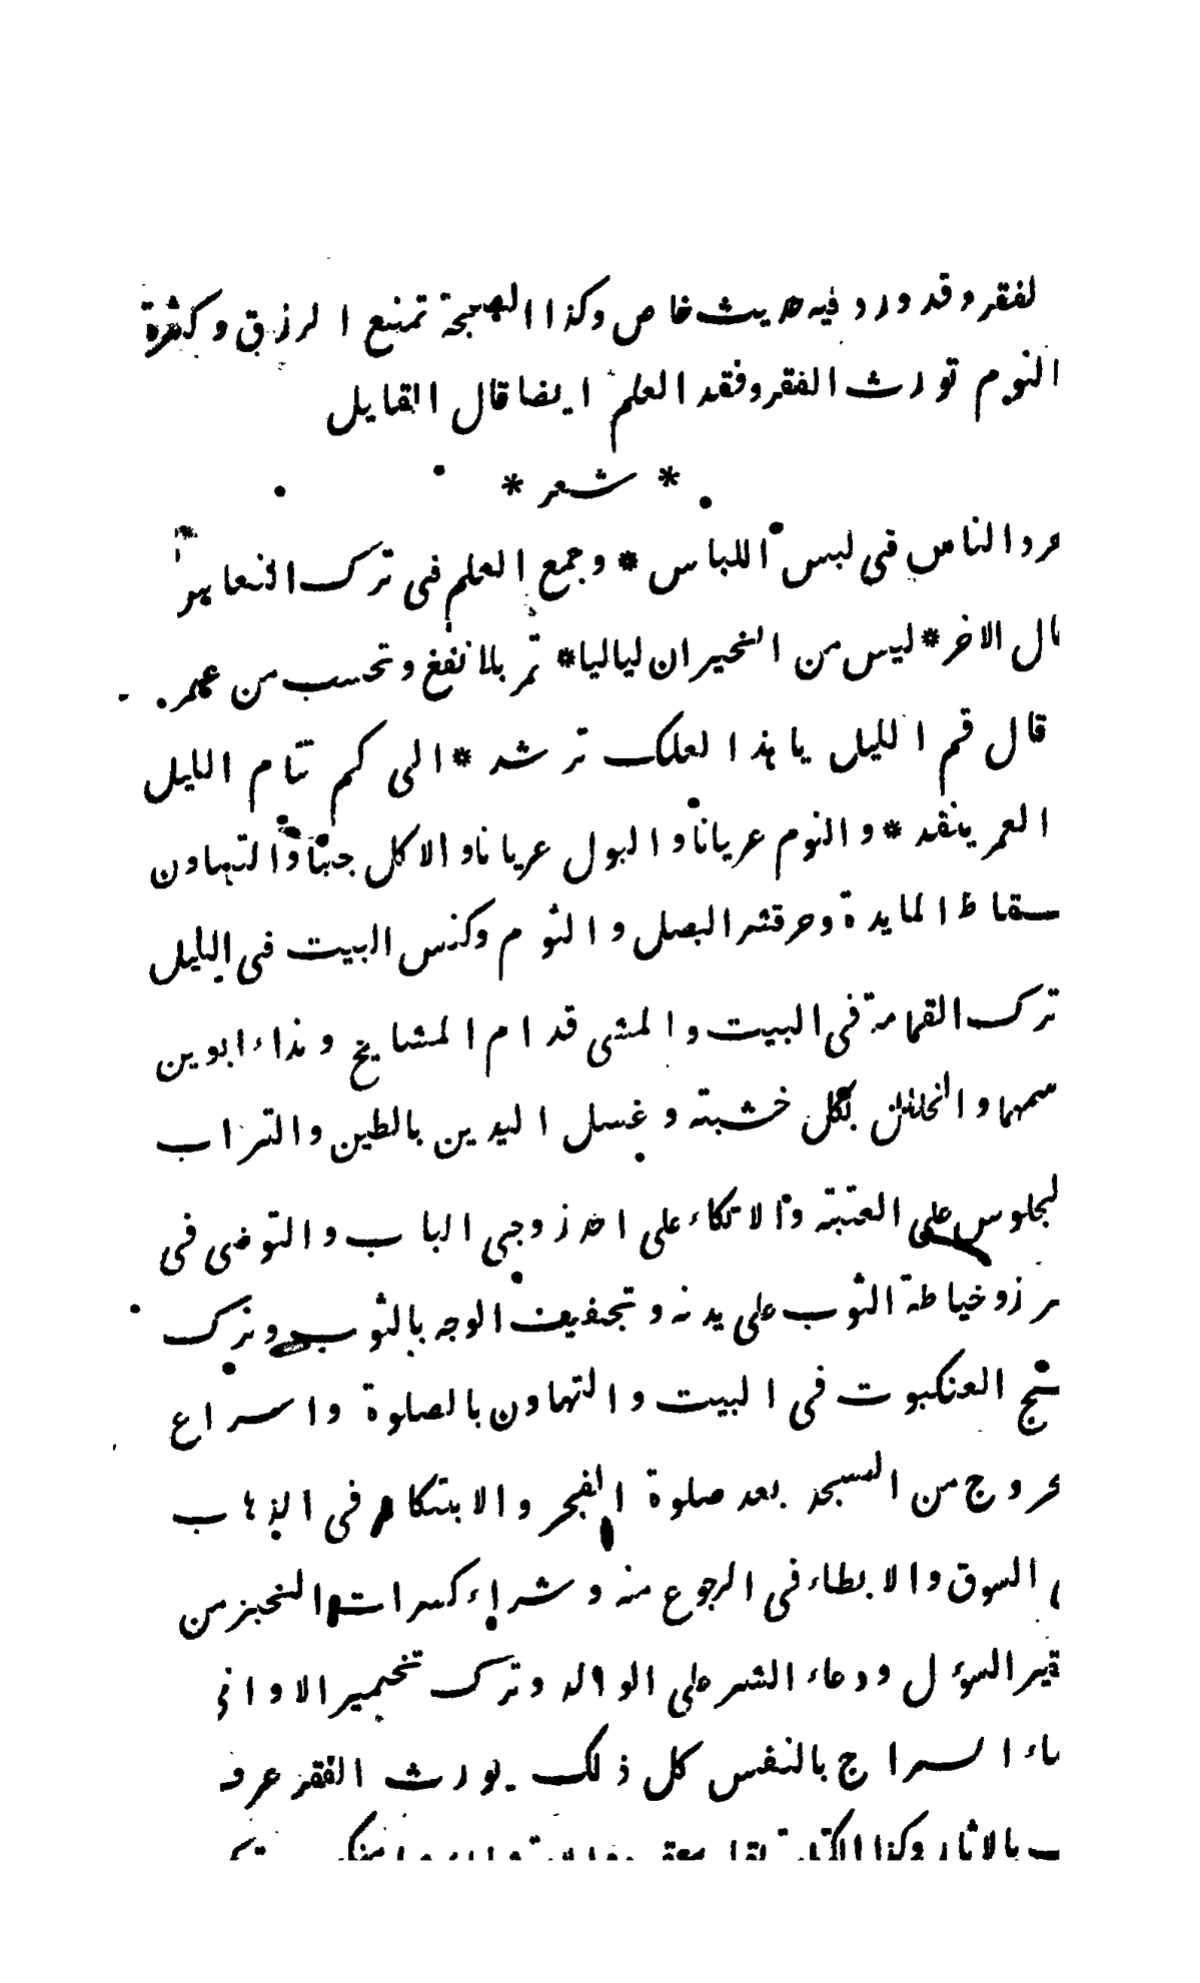 لفقر وقد ورد فيه حديث خاص وكذا الصبحة تمنع الرزق وكثرة
النوم تورث الفقر وفقد العلم ايضا قال القايل
* شعر *
رو الناس في لبس اللباس * وجمع العلم في ترك النعاس
ال الاخر * ليس من الخيران لياليا * تمر بلا نفع وتحسب من عمر
قال قم الليل يا هذا لعلك ترشد * الى كم تنام الليل
العمر ينفد * والنوم عريانا والبول عريانا والاكل جنبا والتهاون
سقاط المايدة وحرقشر البصل والثوم وكنس البيت في الليل
ترك القمامة في البيت والمشي قدام المشايخ ونداء ابوين
سمهما والخلال بكل خشبة وغسل اليدين بالطين والتراب
لجلوس على العتبة والاتكاء على احد زوجي الباب والتوضى في
رز وخياطة الثوب على بدنه وتجفيف الوجه بالثوب وترك
سج العنكبوت في البيت والتهاون بالصلوة واسراع
خروج من المسجد بعد صلوة الفجر والابتكار في الذهاب
ى السوق والابطاء في الرجوع منه وشراء كسرات الخبز من
قير السؤل ودعاء الشر على الوالد وترك تخمير الاواني
اء السراج بالنفس كل ذلك يورث الفقر عرف
ب بالاثار وكذا الكتابة بقلم معقود